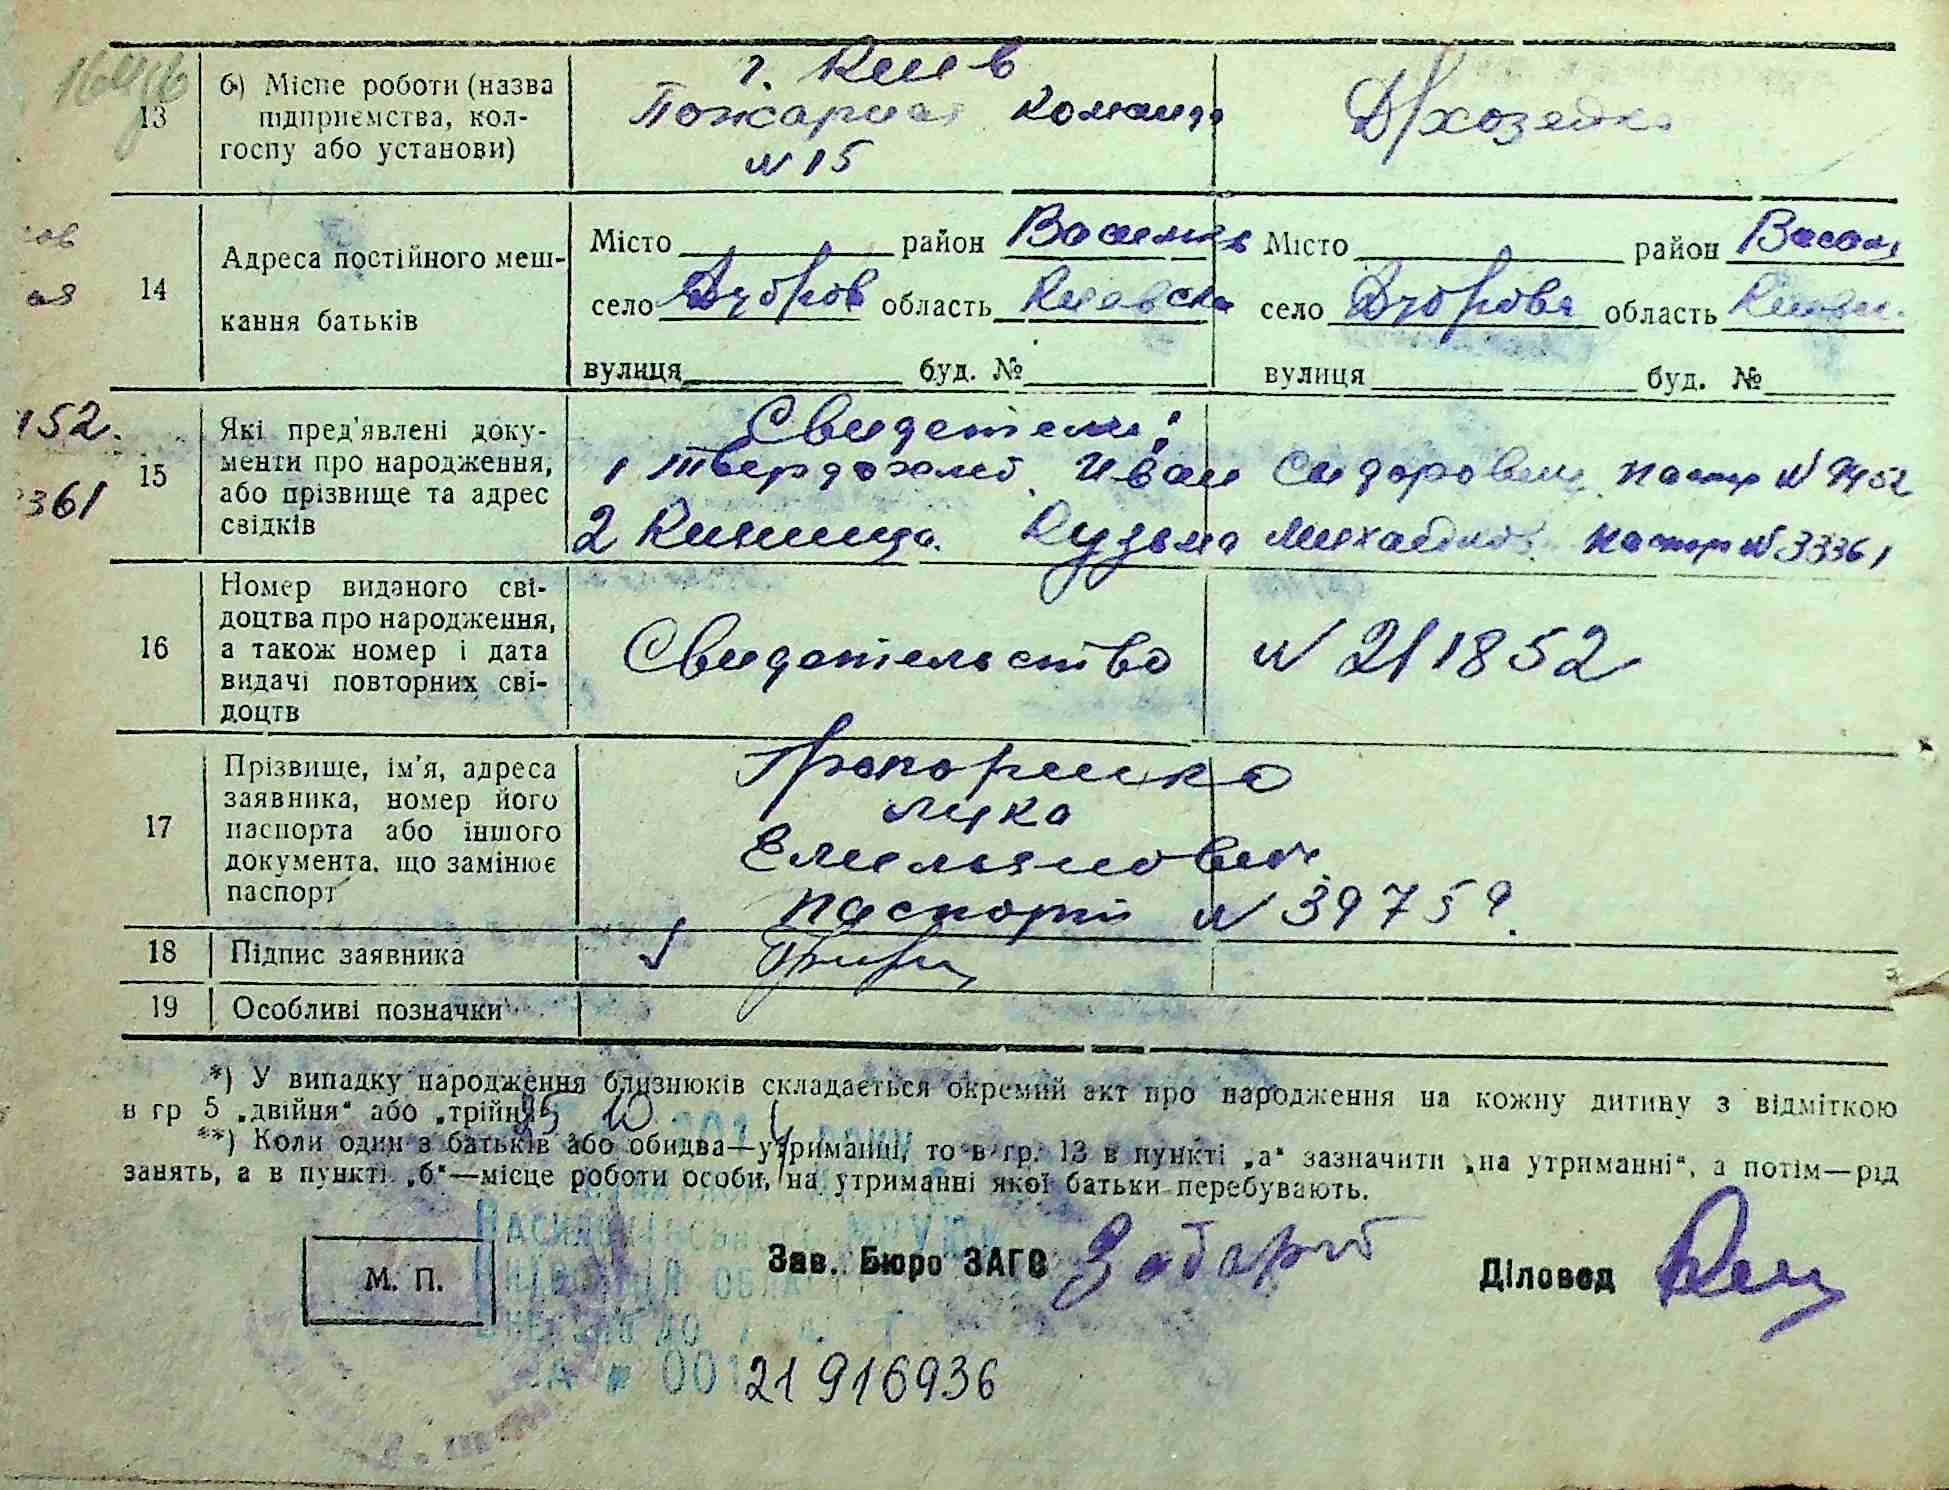 13
б) Місце роботи (назва
підприємства, кол-
госпу або установи)
г. Киев
Пожарная команда
N 15
Д/хозяйка
14
Адреса постійного меш-
кання батьків
Місто район Василько
село область Киевска
вулиця буд. №
Місто район Васил
село область Киевск
вулиця буд. №
152.
3361
15
Які пред'явлені доку-
менти про народження,
або прізвище та адрес
свідків
Свидетели:
1 Твердохлеб Иван Сидорович N 9452
2 Кузьма Михайлов N 33361
16
Номер виданого сві-
доцтва про народження,
а також номер і дата
видачі повторних сві-
доцтв
Свидетельство N 211852
17
Прізвище, ім'я, адреса
заявника, номер його
паспорта або іншого
документа, що замінює
паспорт
Лука
Емельянович
паспорт N 39759.
18
Підпис заявника
19
Особливі позначки
*) У випадку народження близнюків складається окремий акт про народження на кожну дитину з відміткою
в гр 5 „двійня“ або „трійня“
**) Коли один з батьків або обидва—утриманці, то в гр. 13 в пункті „а“ зазначити „на утриманні“, а потім—рід
занять, а в пункті „б“—місце роботи особи, на утриманні якої батьки перебувають.
М. П.
Зав. Бюро ЗАГС
Діловод
001
21916936